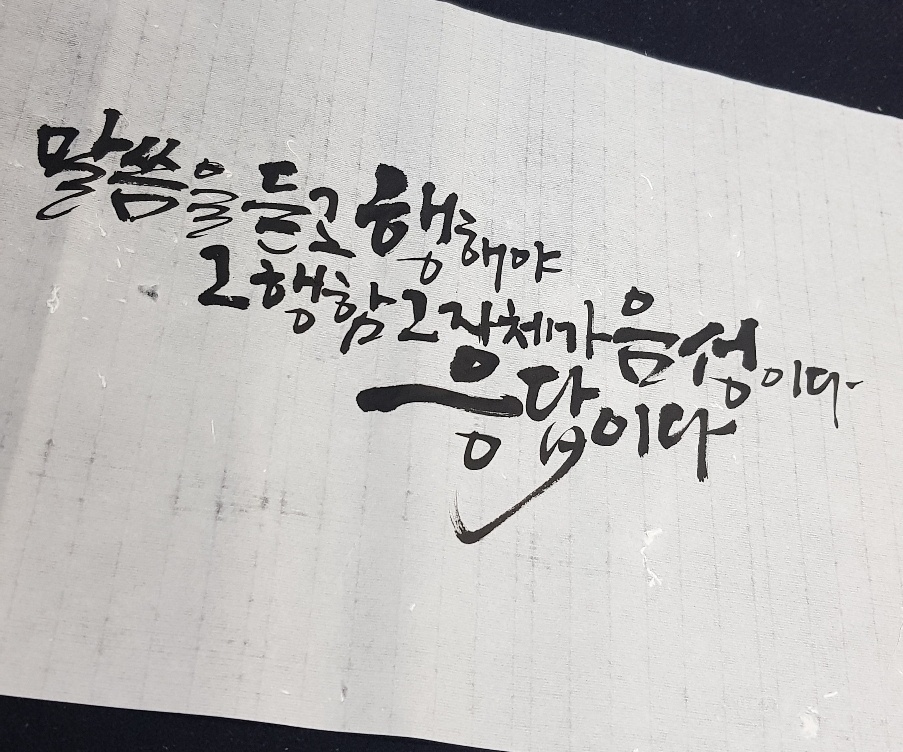 말씀을 듣고 행해야
그 행함 그 자체가 음성이다
응답이다